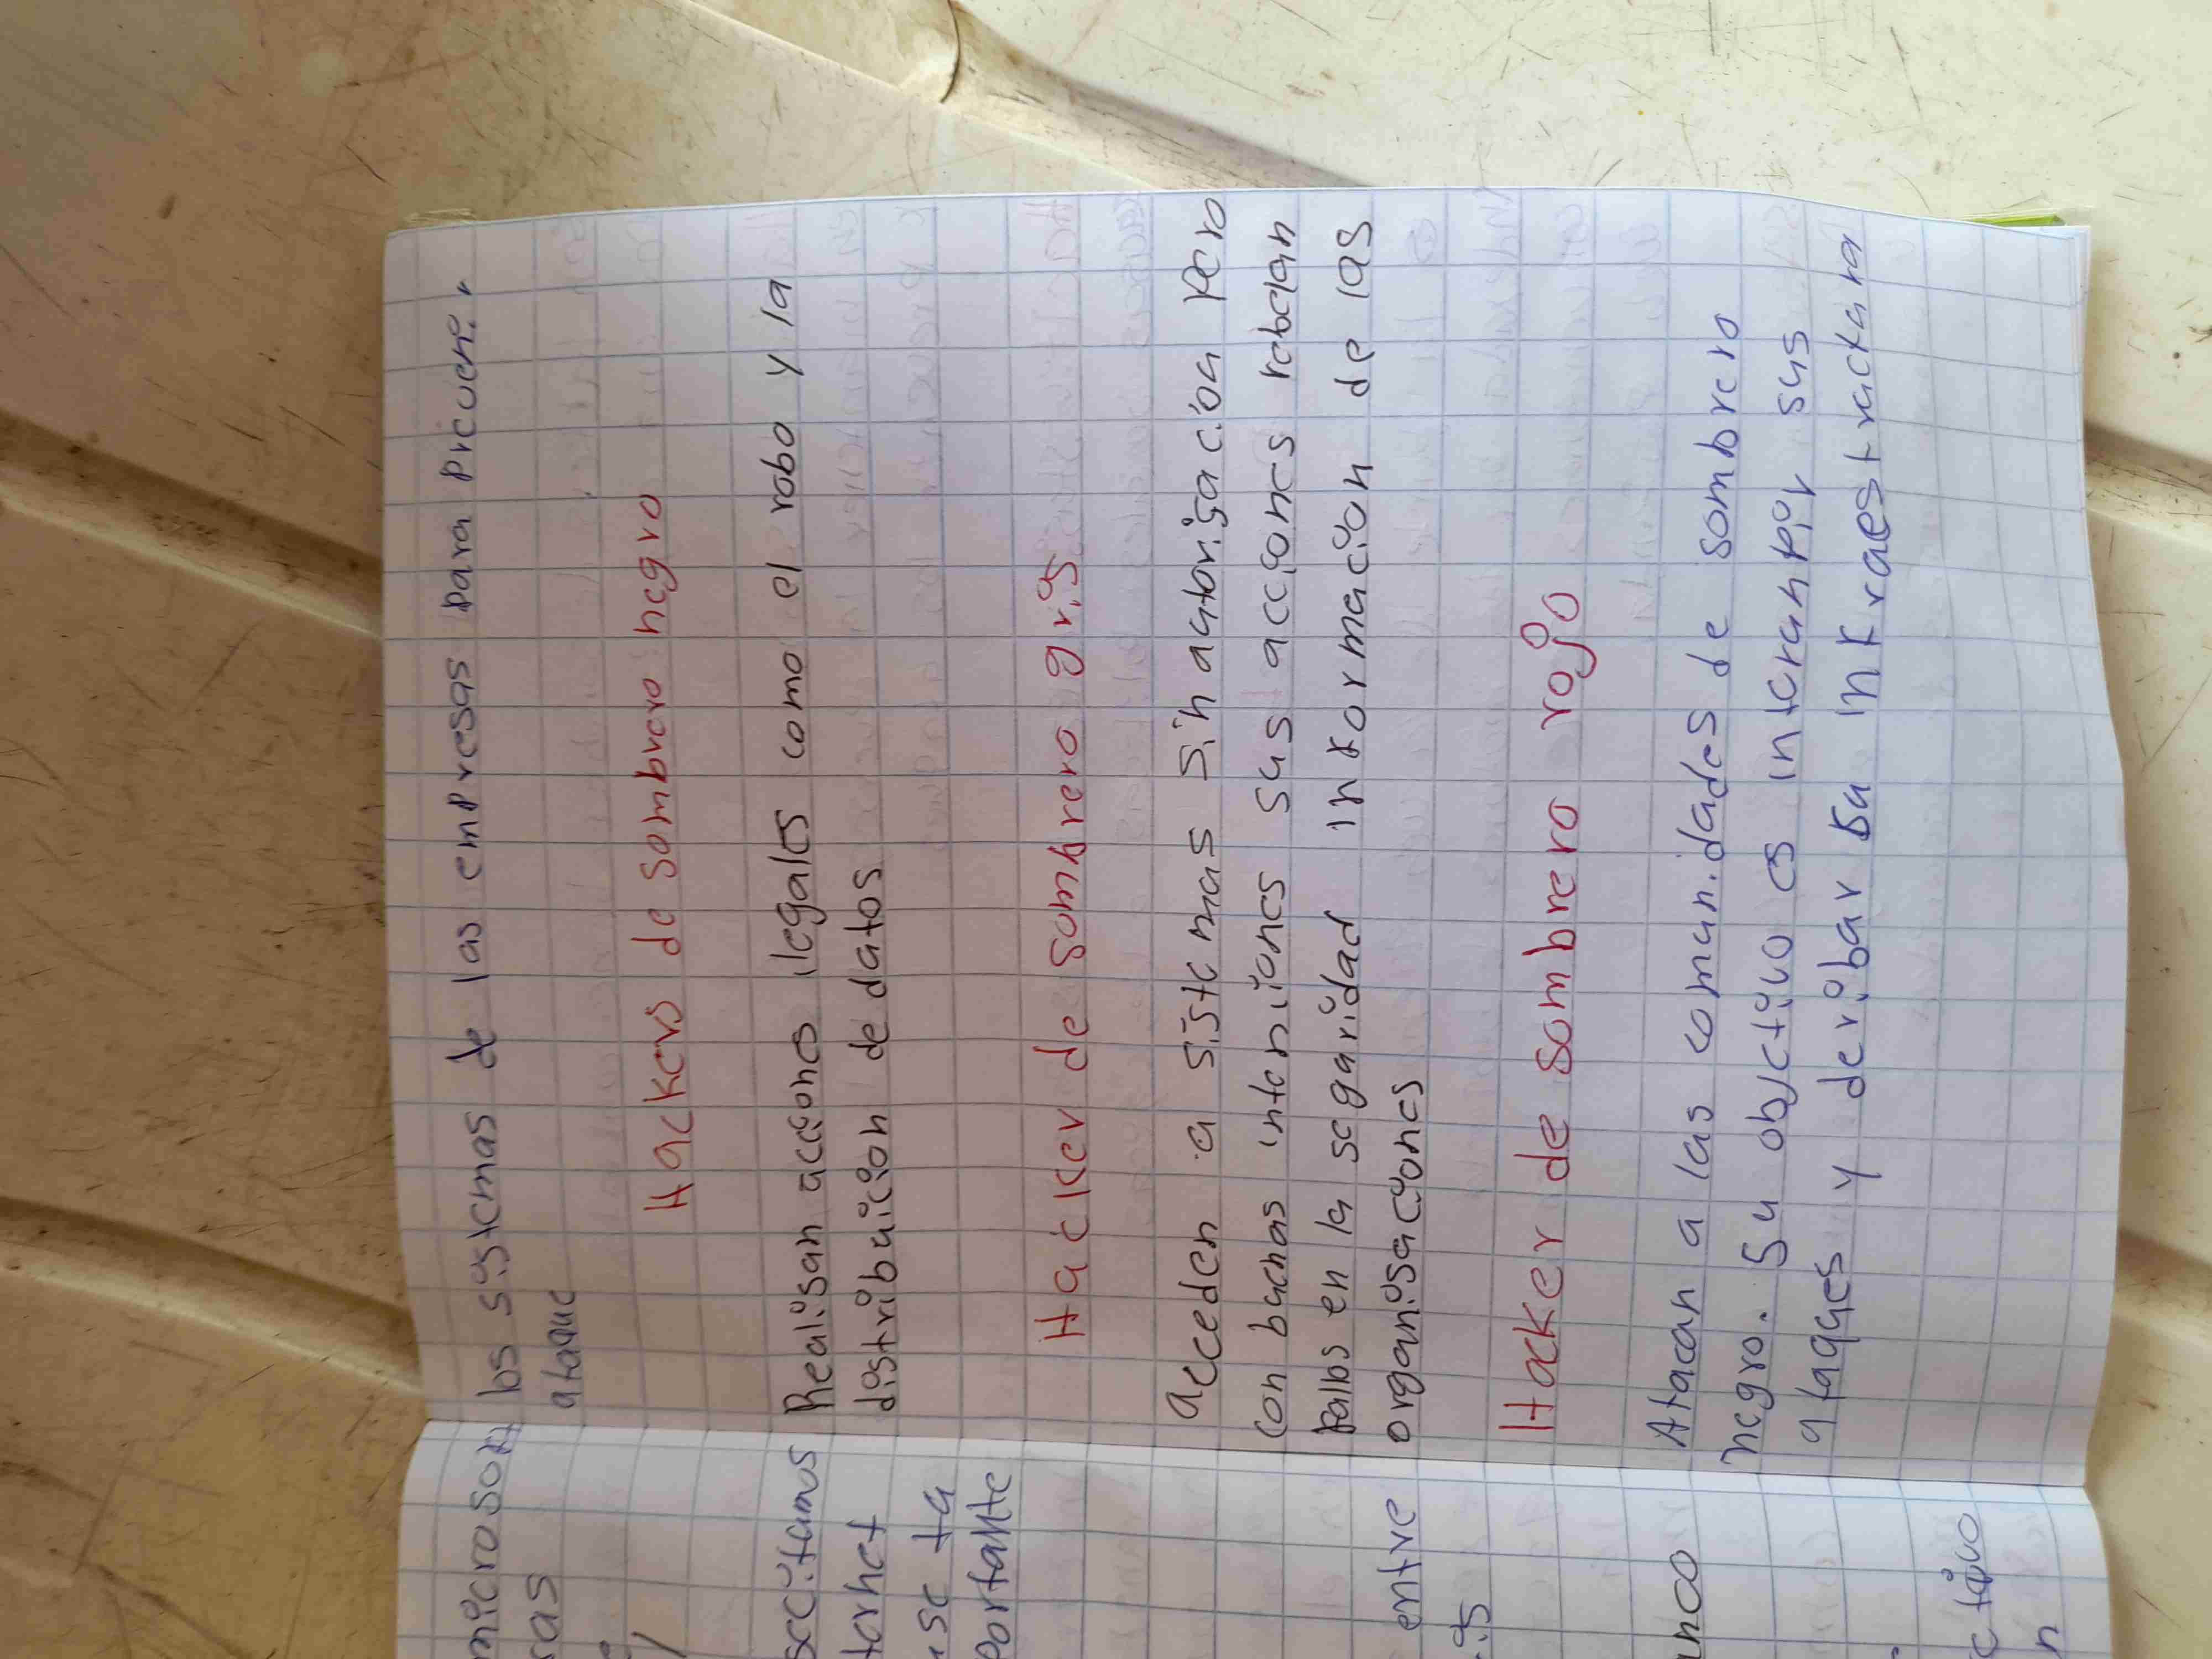 los sistemas de las empresas para
ataque
Hackers de sombrero negro
Realisan acciones ilegales como el robo y la
distribuicion de datos
Hacker de sombrero gris
acceden a sistemas sin autorisacion pero
con buenas intenciones sus acciones rebelan
fallos en la seguridad informacion de las
organisaciones
Hacker de sombrero rojo
Atacan a las comunidades de sombrero
negro. Su objectivo es interumpir sus
ataques y deribar su infraestructura
microsoft
ras
tamos
ternet
portante
entre